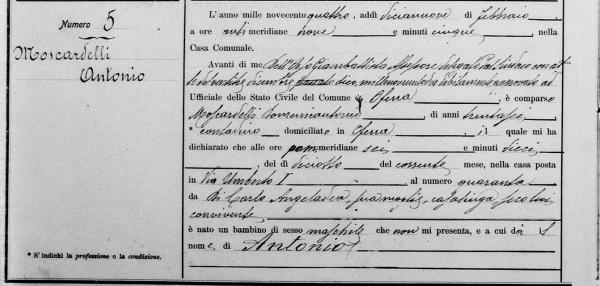 Numero 5
Moscardelli
Antonio
L'anno mille novecentoquattro, addì diciannove di Febbraio,
a ore anti meridiane nove e minuti cinque, nella
Casa Comunale.
Avanti di me Giambattista Assessore delegato
Ufficiale dello Stato Civile del Comune di Ofena, è comparso
Moscardelli Domenicantonio, di anni trentasei,
* contadino domiciliato in Ofena, il quale mi ha
dichiarato che alle ore pomeridiane sei e minuti dieci
, del dì diciotto del corrente mese, nella casa posta
in Via Umberto I al numero quaranta
da Di Carlo Angeladea sua moglie, casalinga, seco lui
convivente,
è nato un bambino di sesso maschile che non mi presenta, e a cui dà il
nome di Antonio
* S'indichi la professione o la condizione.